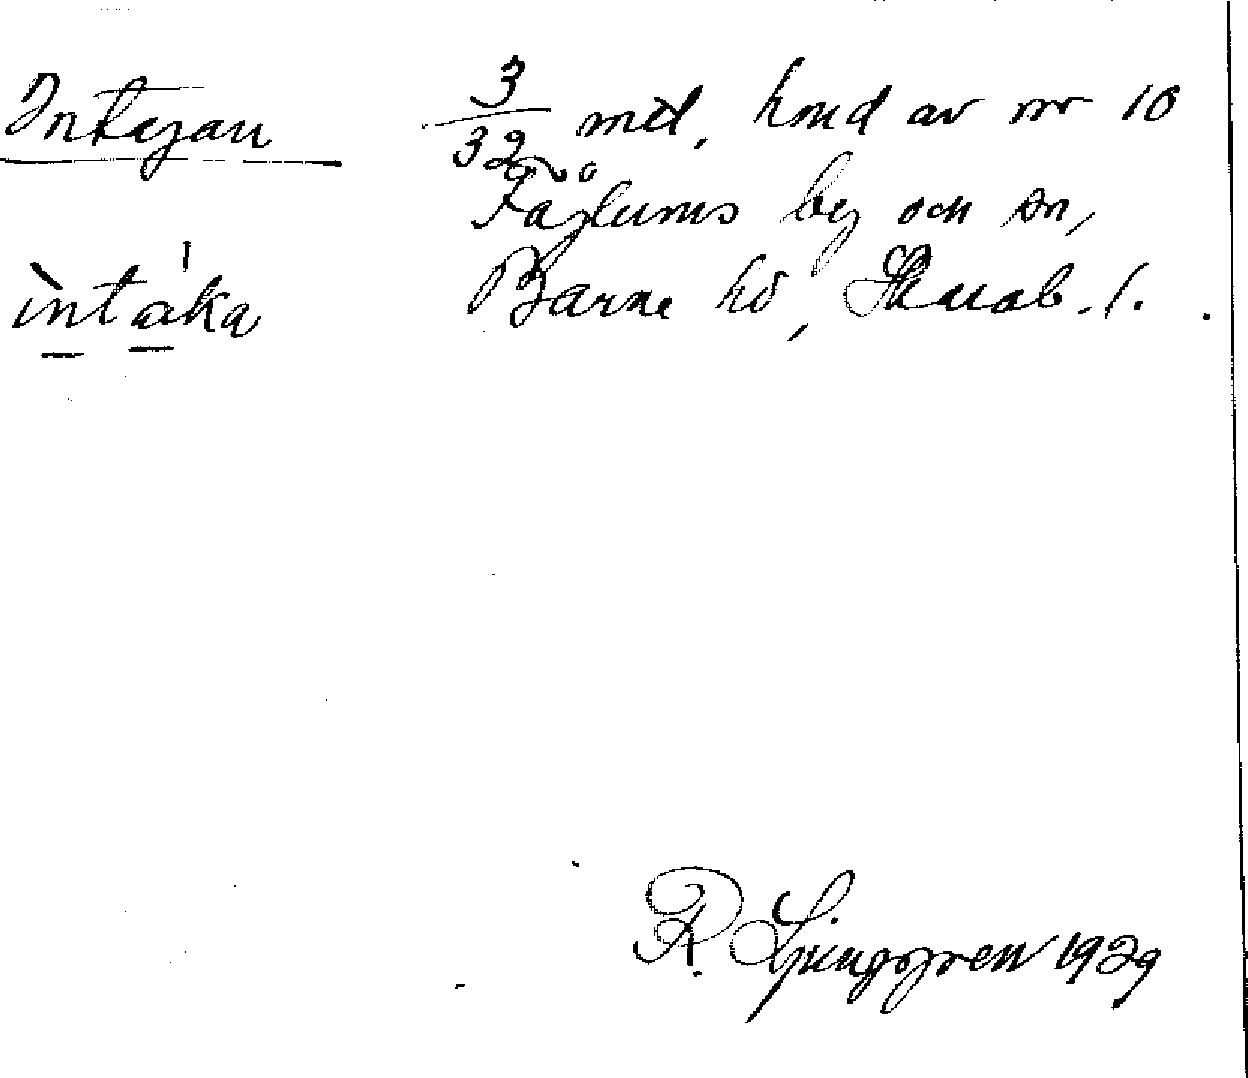 Intagan 3/32 mtl, hmd av nr 10
Fåglums by och sn,
intàka Barne hd, Skarab. l.
R. Ljunggren 1929